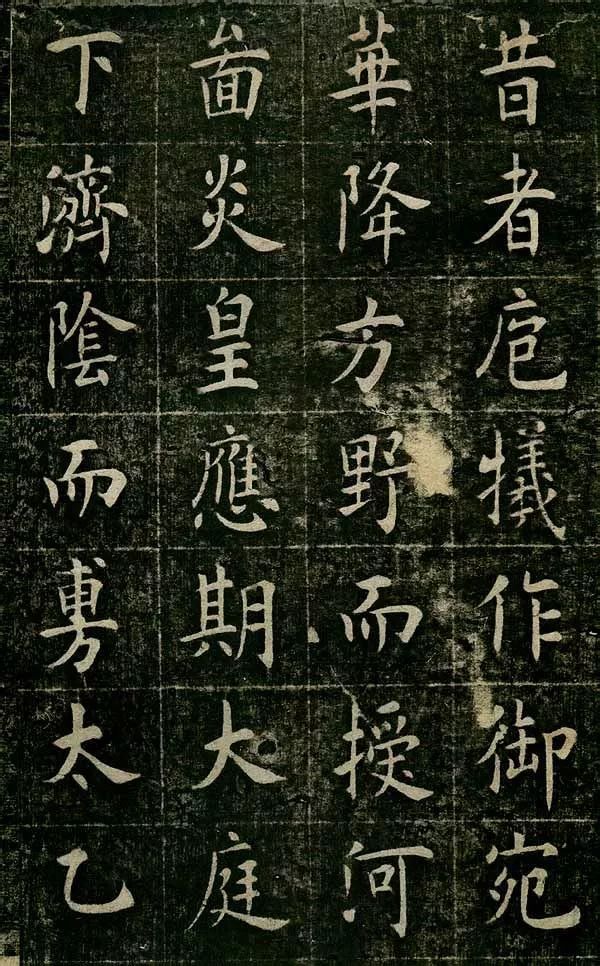 昔者庖犧作御宛
華降方野而授河
啚炎皇應期大庭
下濟陰而旉太乙